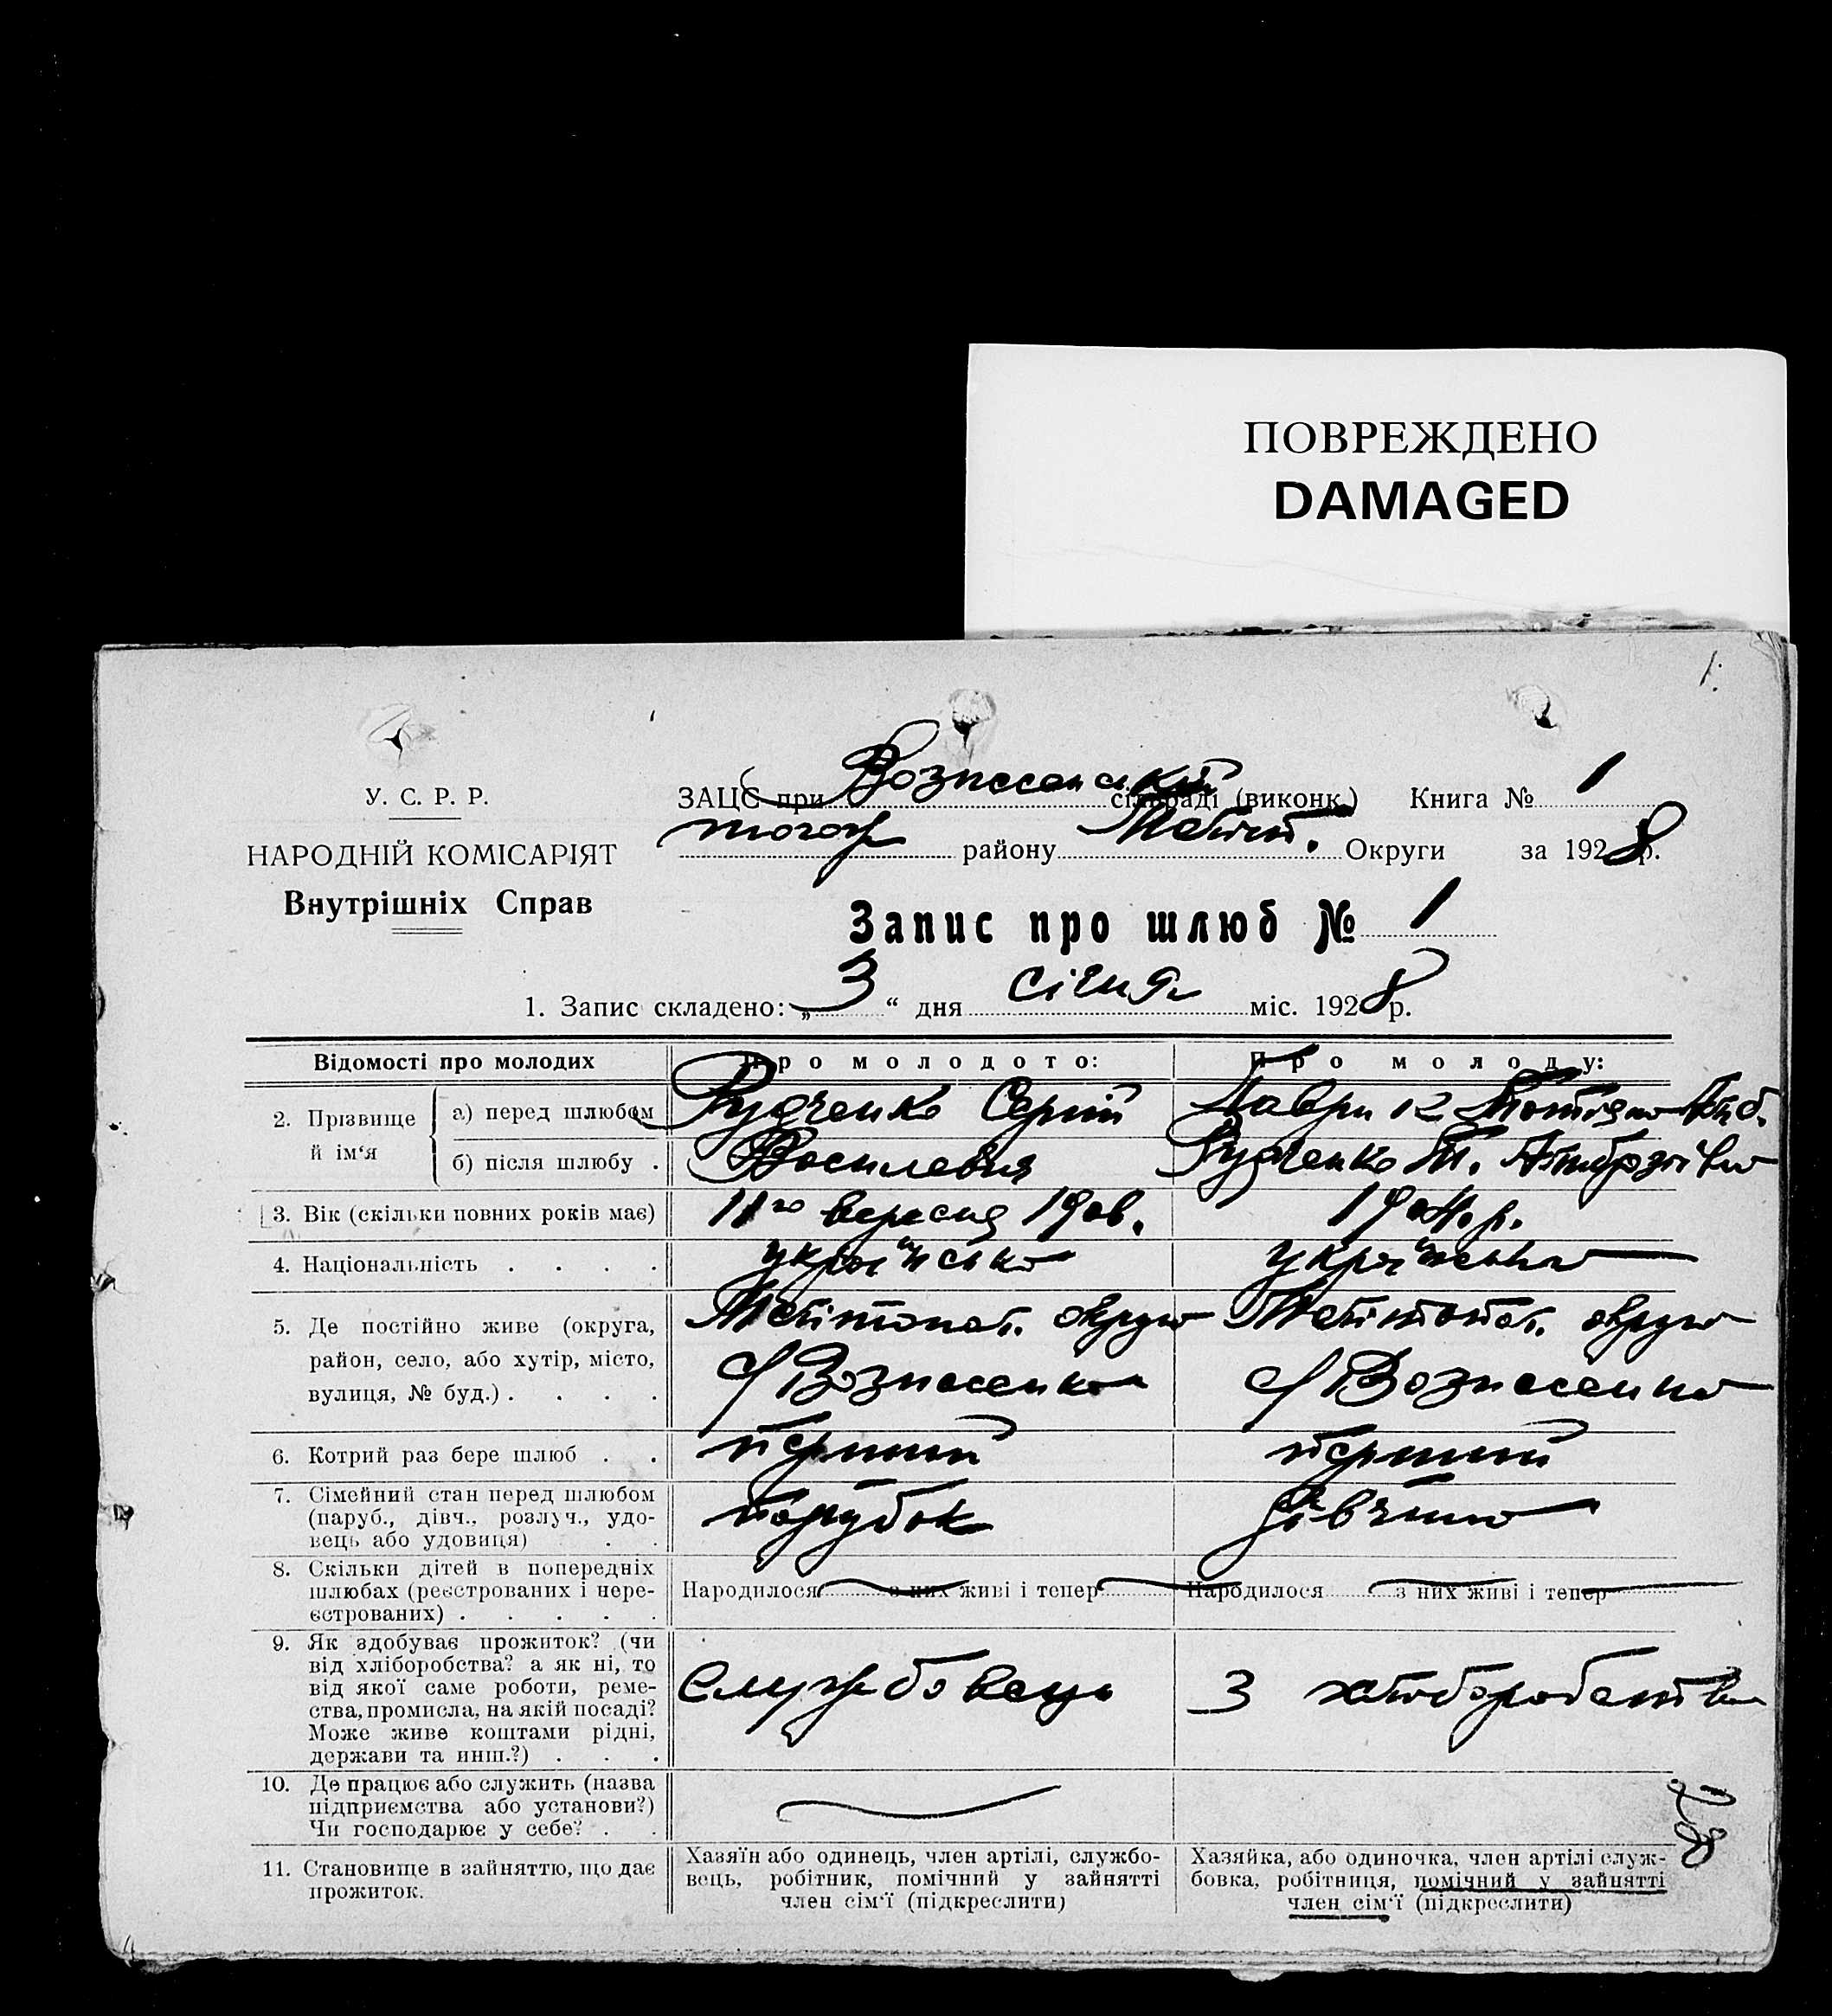 ПОВРЕЖДЕНО
DAMAGED
1.
У. С. Р. Р.
НАРОДНІЙ КОМІСАРІЯТ
Внутрішніх Справ
ЗАЦС при Вознесенській сільраді (виконк.) Книга № 1
тогож району Меліт. Округи за 1928 р.
Запис про шлюб № 1
1. Запис складено: „ 3 “ дня січня міс. 1928 р.
Відомості про молодих
Про молодого:
Про молоду:
2. Прізвище й ім‘я
а) перед шлюбом
Рудченко Сергій
Лаврик Тотяна
б) після шлюбу .
Василевич
Рудченко Т.
3. Вік (скільки повних років має)
11го вересня 190
1904 р.
4. Національність . . . .
українська
українська
5. Де постійно живе (округа,
район, село, або хутір, місто,
вулиця, № буд.) . . . .
Мелітопол. округа
с/Вознесенка
Мелітопол. округа
с/Вознесенка
6. Котрий раз бере шлюб . .
перший
перший
7. Сімейний стан перед шлюбом
(паруб., дівч., розлуч., удо-
вець або удовиця) . .
парубок
дівчина
8. Скільки дітей в попередніх
шлюбах (реєстрованих і нере-
єстрованих) . . . . .
Народилося з них живі і тепер
Народилося з них живі і тепер
9. Як здобуває прожиток? (чи
від хліборобства? а як ні, то
від якої саме роботи, реме-
ства, промисла, на якій посаді?
Може живе коштами рідні,
держави та инш.?) . . .
Службовець
З хліборобства
10. Де працює або служить (назва
підприємства або установи?)
Чи господарює у себе? . .
11. Становище в зайняттю, що дає
прожиток.
Хазяїн або одинець, член артілі, службо-
вець, робітник, помічний у зайнятті
член сім‘ї (підкреслити)
Хазяйка, або одиночка, член артілі служ-
бовка, робітниця, помічний у зайнятті
член сім‘ї (підкреслити)